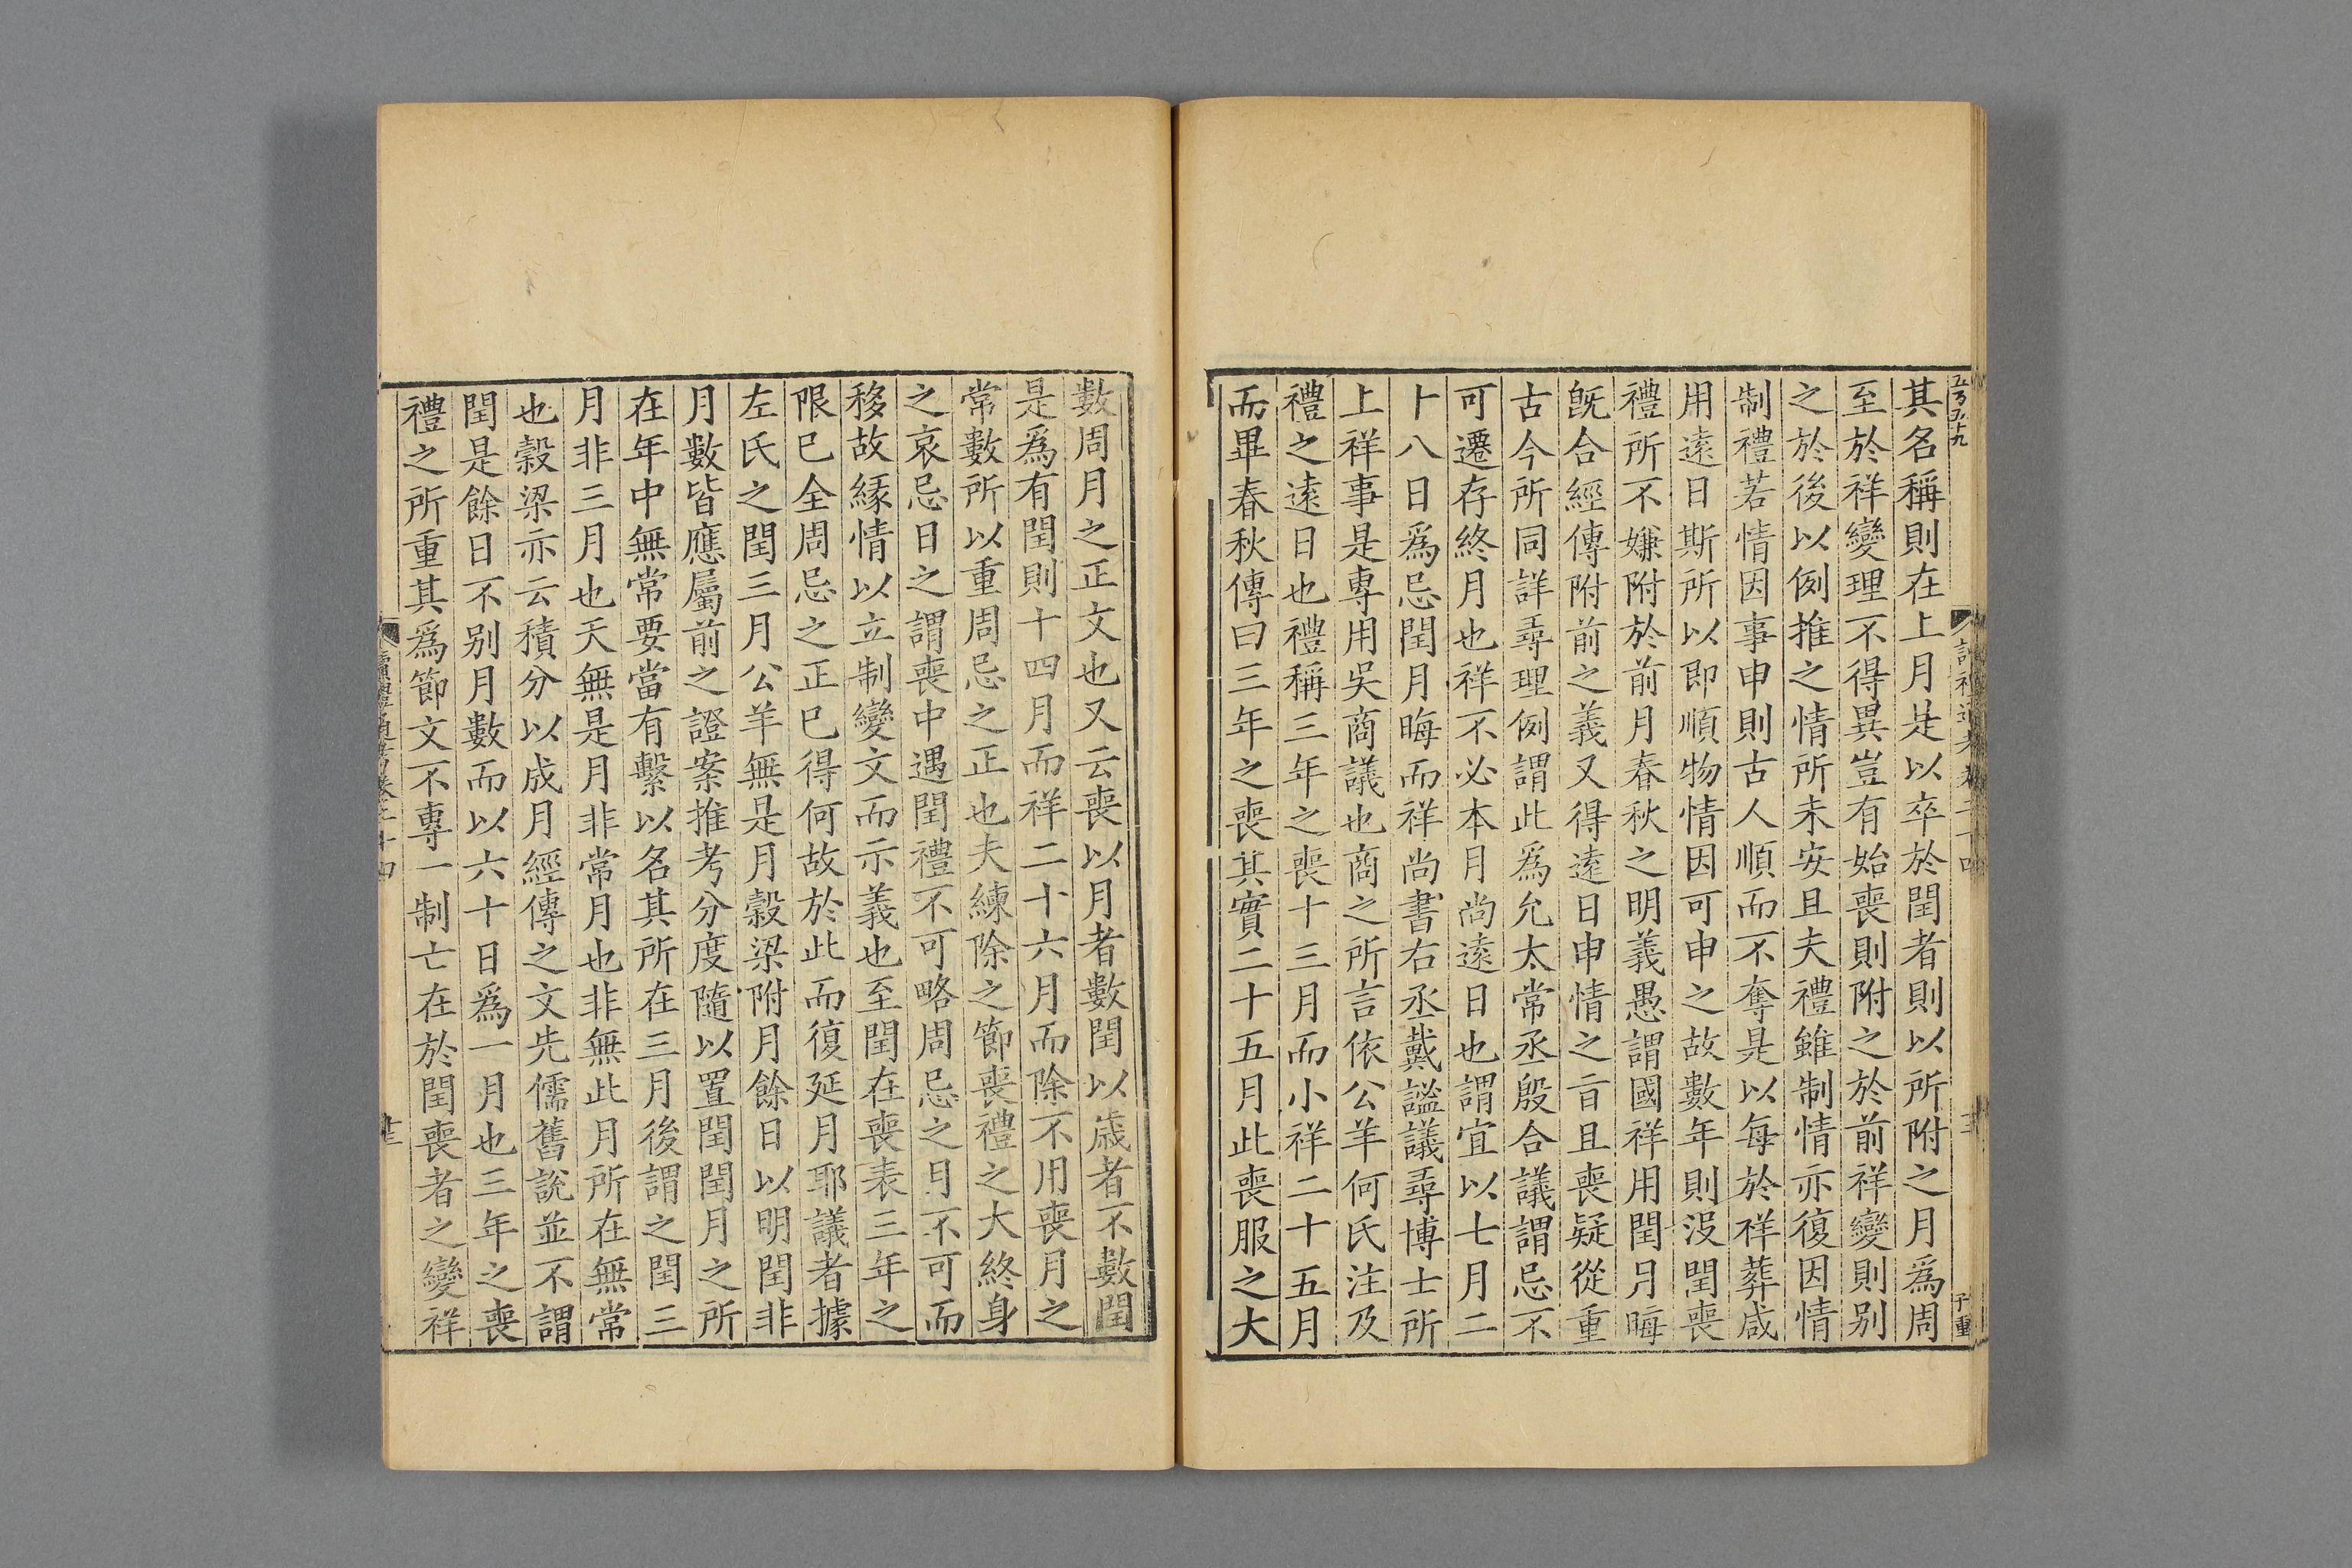 其名稱則在上月是以卒於閏者則以所附之月爲周
至於祥變理不得異豈有始喪則附之於前祥變則别
之於後以例推之情所未安且夫禮雖制情亦復因情
制禮若情因事申則古人順而不奪是以每於祥葬咸
用遠日斯所以即順物情因可申之故數年則沒閏喪
禮所不嫌附於前月春秋之明義愚謂國祥用閏月晦
既合經傳附前之義又得遠日申情之㫖且喪疑從重
古今所同詳尋理例謂此爲允太常丞殷合議謂忌不
可遷存終月也祥不必本月尚遠日也謂宜以七月二
十八日爲忌閏月晦而祥尚書右丞戴謐議尋博士所
上祥事是專用吳商議也商之所言依公羊何氏注及
禮之遠日也禮稱三年之喪十三月而小祥二十五月
而畢春秋傳曰三年之喪其實二十五月此喪服之大
數周月之正文也又云喪以月者數閏以歲者不數閏
是爲有閏則十四月而祥二十六月而除不用喪月之
常數所以重周忌之正也夫練除之節喪禮之大終身
之哀忌日之謂喪中遇閏禮不可略周忌之月不可而
移故緣情以立制變文而示義也至閏在喪表三年之
限已全周忌之正已得何故於此而復延月耶議者據
左氏之閏三月公羊無是月穀梁附月餘日以明閏非
月數皆應屬前之證案推考分度隨以置閏閏月之所
在年中無常要當有繫以名其所在三月後謂之閏三
月非三月也天無是月非常月也非無此月所在無常
也穀梁亦云積分以成月經傳之文先儒舊說並不謂
閏是餘日不别月數而以六十日爲一月也三年之喪
禮之所重其爲節文不專一制亡在於閏喪者之變祥
讀禮通考卷二十四